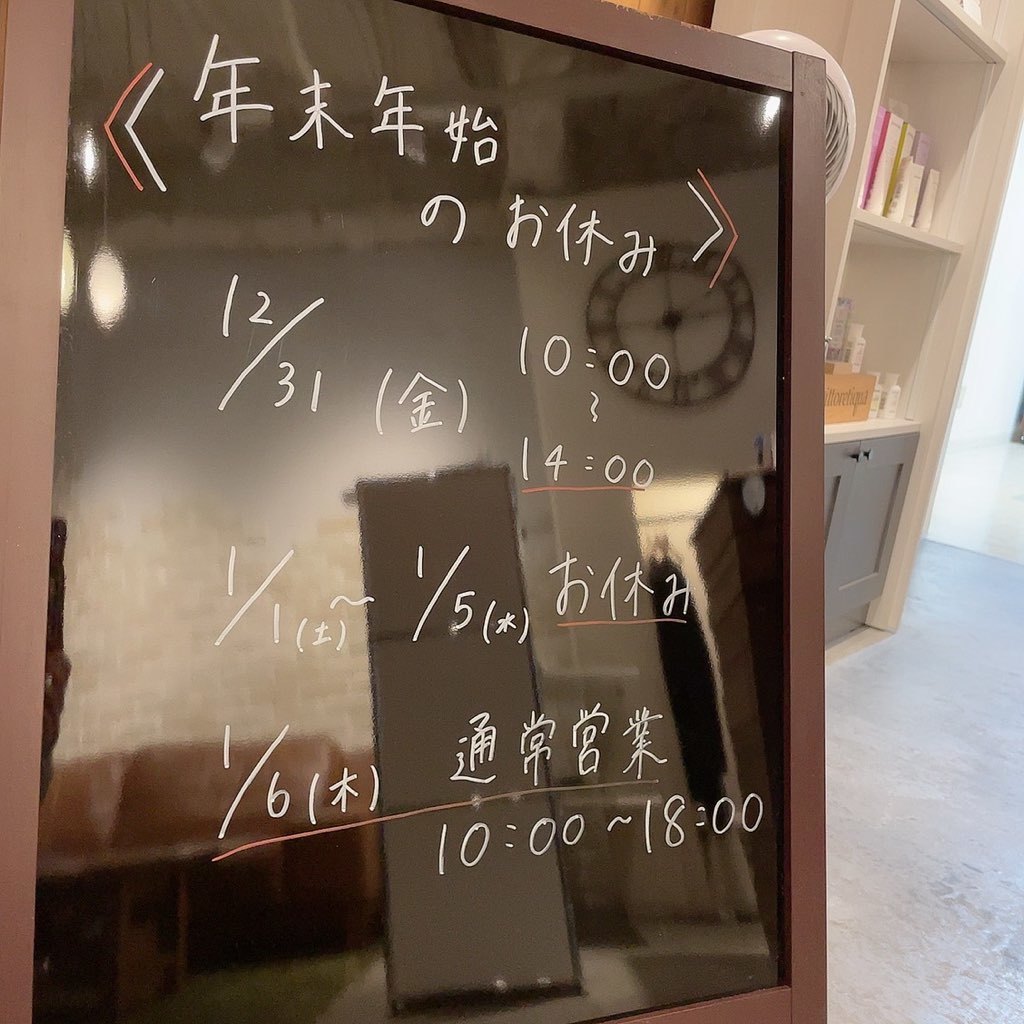 《年末年始
のお休み》
12/31(金) 10:00
〜
14:00
1/1(土)〜1/5(水) お休み
1/6(木) 通常営業
10:00〜18:00